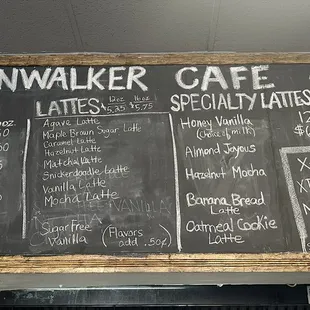 NWALKER CAFE
LATTES 12oz $5.25 16oz $5.75
Agave Latte
Maple Brown Sugar Latte
Caramel Latte
Hazelnut Latte
Matcha Latte
Snickerdoodle Latte
Vanilla Latte
Mocha Latte
Sugar Free Vanilla
(Flavors add .50¢)
SPECIALTY LATTES
Honey Vanilla
(choice of milk)
Almond Joyous
Hazelnut Mocha
Banana Bread
Latte
Oatmeal Cookie
Latte